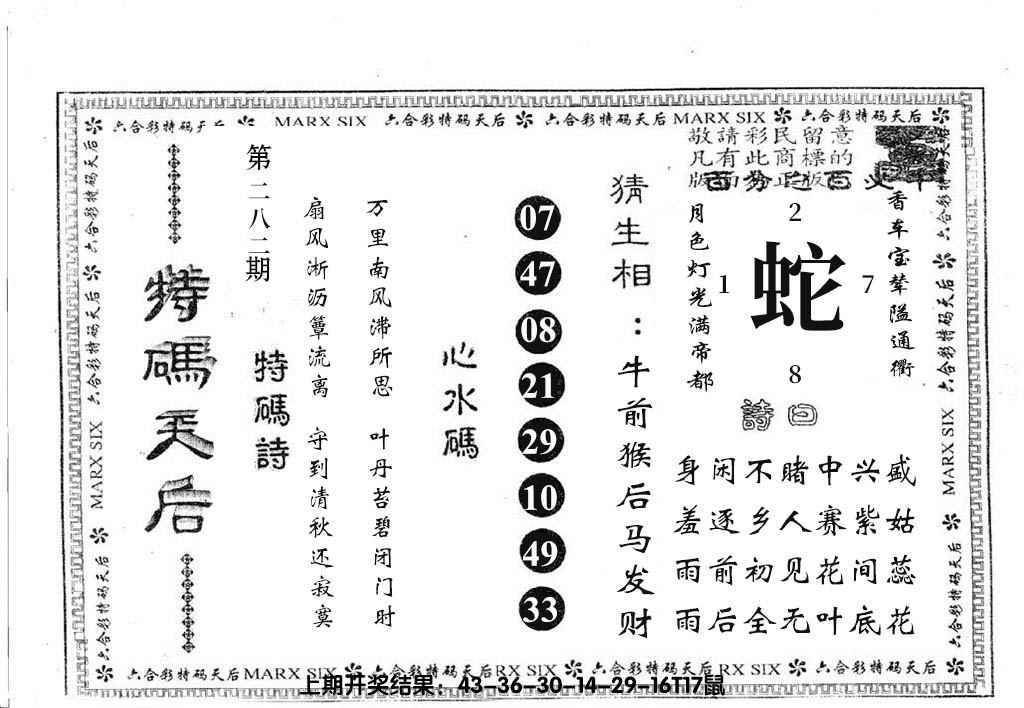 六合彩特码天后 MARX SIX 六合彩特码天后 六合彩特码天后 MARX SIX 六合彩特码天后
敬請彩民留意
凡有此商標的
百分之百
香车宝辇隘通衢
月色灯光满帝都
2
1 蛇 7
8
詩曰
身闲不睹中兴盛
羞逐乡人赛紫姑
雨前初见花间蕊
雨后全无叶底花
猜生相：牛前猴后马发财
07
47
08
21
29
10
49
33
心水碼
万里南风滞所思 叶丹苔碧闭门时
扇风淅沥簟流离 守到清秋还寂寞
第二八二期
特碼詩
特碼天后
六合彩特码天后 六合彩特码天后 MARX SIX 六合彩特码天后
六合彩特码天后 六合彩特码天后 MARX SIX 六合彩特码天后
六合彩特码天后 MARX SIX 六合彩特码天后 RX SIX 六合彩特码天后 RX SIX 六合彩特码天后
上期开奖结果：43-36-30-14-29-16T17鼠